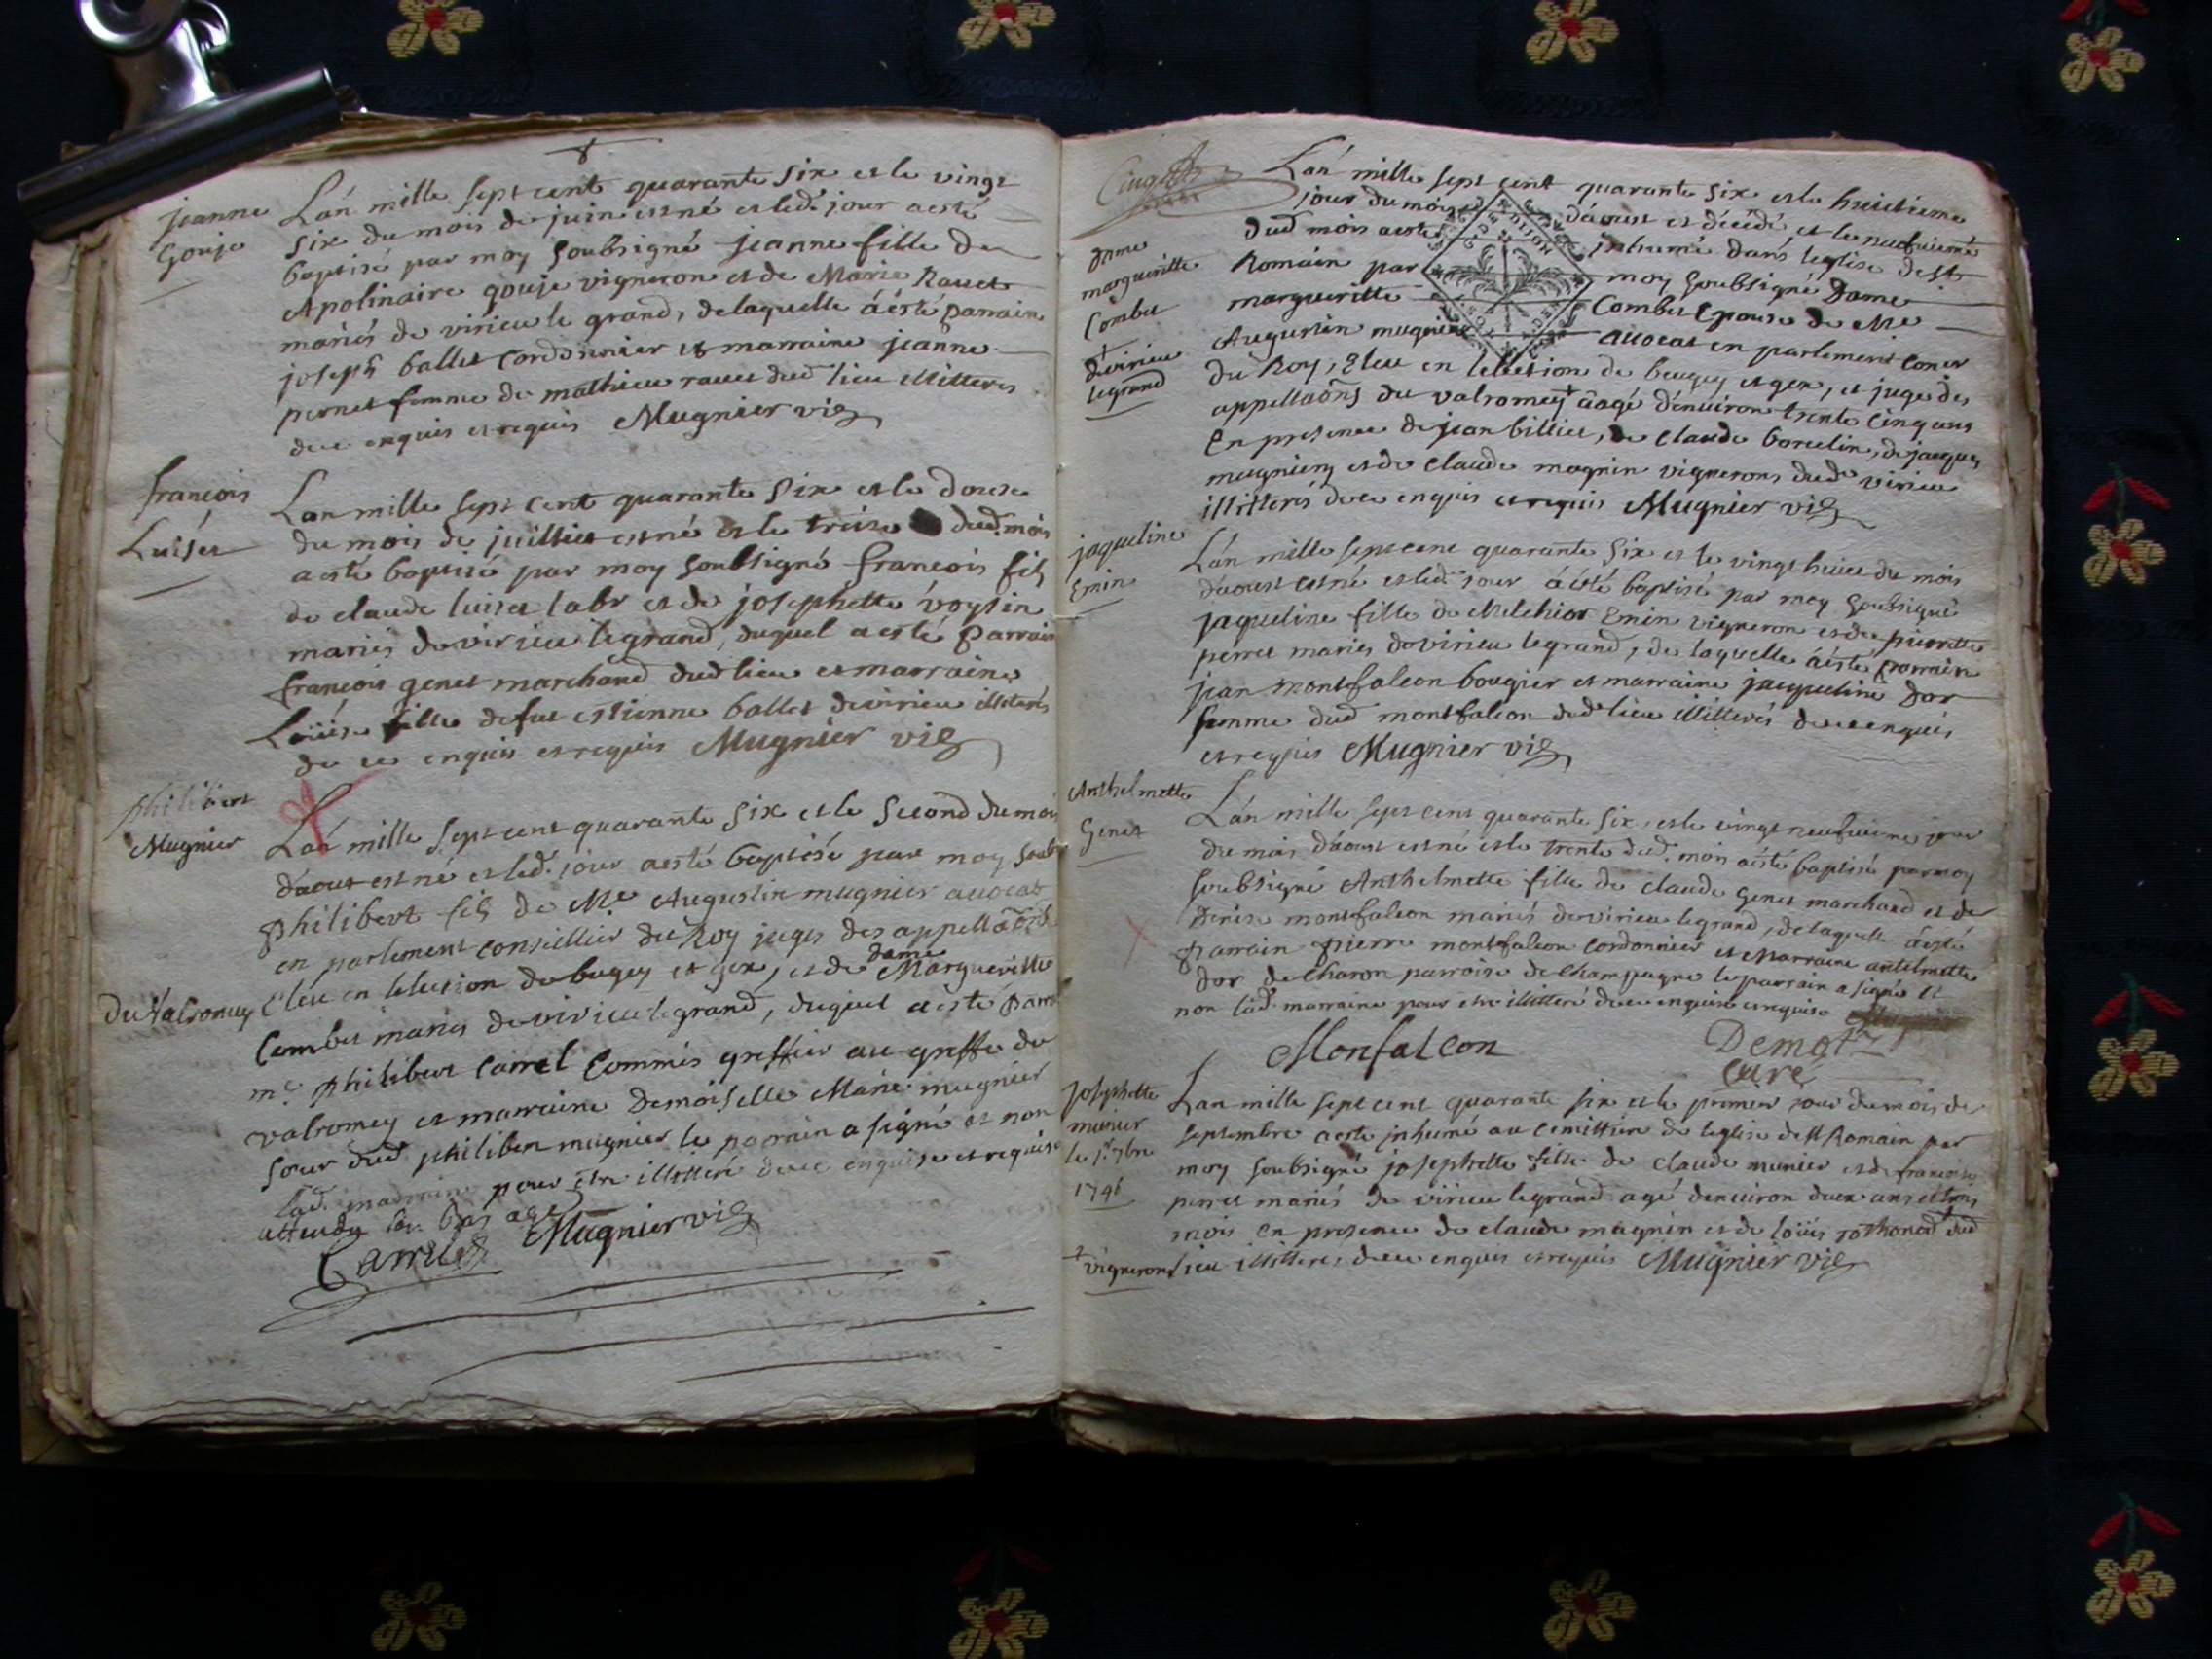 jeanne
Gouje
Lán mille sept cent quarante six et le vingt
six du mois de juin est né et led. jour a esté
baptisé par moy soubsigné jeanne fille de
Apolinaire gouje vigneron et de Marie Rauet
mariés de virieu le grand, de laquelle á esté parrain
joseph ballet cordonnier et marraine jeanne
pernet femme de mathieu rauet dud lieu illitteres
de ce enquis et requis Mugnier vic
françois
Luiset
Lan mille sept cent quarante six et le douze
du mois de juilliet est né et le treize dud. mois
a esté baptisé par moy soubsigné françois fils
de claude luiset labr et de josephette voysin
mariés de virieu legrand, duquel a esté parrain
françois genet marchand dud lieu et marraine
Loüise fille de fut estienne ballet de virieu illiterés
de ce enquis et requis Mugnier vic
philibert
Mugnier
Lán mille sept cent quarante six et le second du mois
d'aout est né et led. jour a esté baptisé par moy soub
philibert fils de Me Augustin mugnier auocat
en parlement conseillier du Roy juges des appellaöns
du Valromey Eleu en lelection de bugey et gex, et de dame Margueritte
Combet mariés de virieu le grand, duquel a esté parrain
mc. philibert Carrel Commis greffier au greffe de
valromey et marraine Demoiselle Marie mugnier
sœur dud philibert mugnier le parrain a signé et non
lad. marraine pour être illitteré de ce enquise et requise
attendu son bas age
Carrel Mugnier vic
Lán mille sept cent quarante six et le huictieme
jour du mois d'aoust est décédé, et le neufuieme
dud mois a esté inhumé dans leglise de st
Romain par moy soubsigné Dame
margueritte Combet Epouse de Me
Augustin mugnier auocat en parlement coner
du Roy, Eleu en lelection de beugey et gex, et juge des
appellaöns du valromey + aâgé d'enuiron trente cinq ans
En presence de jean billiet, de claude borcelin, de jacques
mugnier, et de claude magnin vignerons dud. virieu
illitterés de ce enquis et requis Mugnier vic
Dame
margueritte
Combet
+
de virieu
legrand
jaqueline
Emin
Lán mille sept cent quarante six et le vingt huict du mois
d'aoust est né et led. jour á été baptisé par moy soubsigné
jaqueline fille de Melchior Emin vigneron et de pierrette
perret mariés de virieu legrand, de laquelle á esté parrain
jean montfalcon bougier et marraine jacqueline Dor
femme dud montfalcon dud lieu illitterés de ce enquis
et requis Mugnier vic
Anthelmette
Genet
Lán mille sept cent quarante six, et le vingt neufuieme jour
du mois d'aoust est né et le trente dud. mois a ésté baptisé par moy
soubsigné Anthelmette fille de claude Genet marchand et de
Denise montfalcon mariés de virieu legrand, de laquelle á esté
parrain pierre montfalcon cordonnier et Marraine antelmette
Dor de Charon parroise de Champagne le parrain a signé et
non lad. marraine pour être illitteré de ce enquise et requise
Monfalcon Demotz
Curé
josephette
munier
le 1r. 7bre
1746
Lan mille sept cent quarante six et le premier jour du mois de
septembre a esté inhumé au cemittiere de leglise de st Romain par
moy soubsigné josephette fille de claude munier et de françoise
perret mariés de virieu legrand agé denuiron deux ans et trois
mois en presence de claude magnin et de loüis rothonod + dud
+
vignerons lieu illitteres de ce enquis et requis Mugnier vic